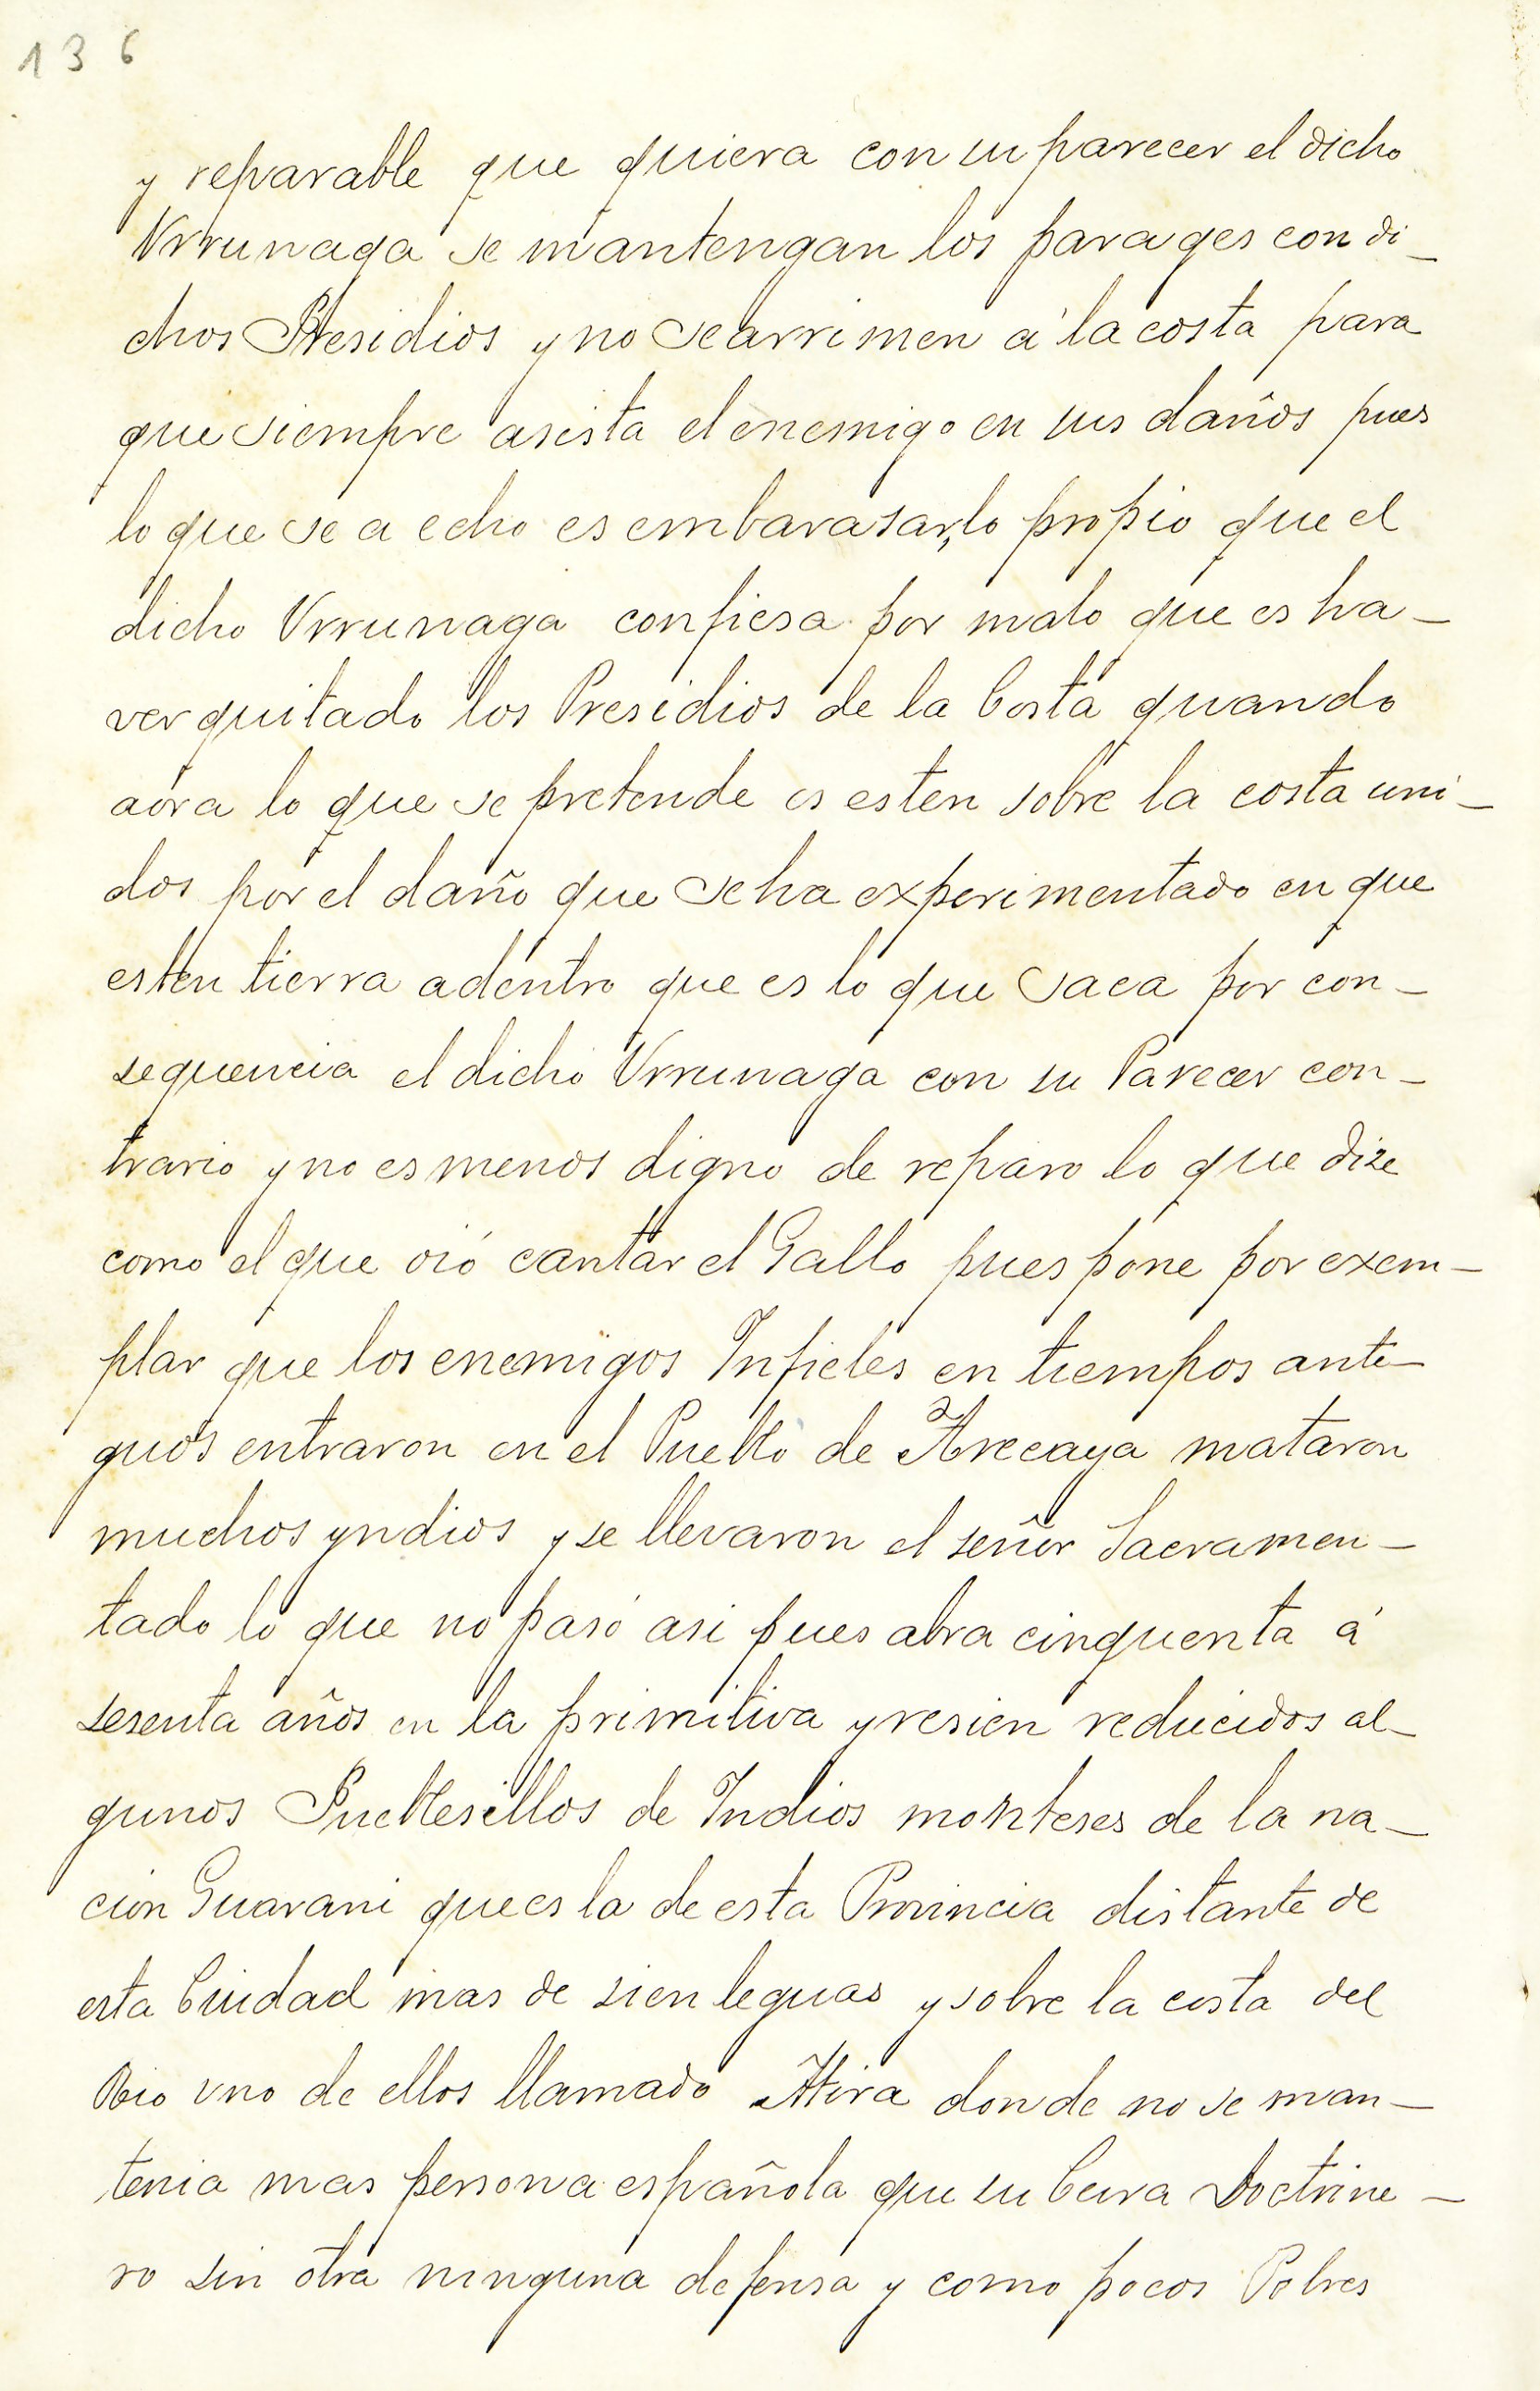 136
y reparable que quiera con su parecer el dicho
Vrrunaga se mantengan los parages con di_
chos Presidios y no se arrimen á la costa para
que siempre asista el enemigo en sus daños pues
lo que se a echo es embarasar, lo propio que el
dicho Vrrunaga confiesa por malo que es ha_
ver quitado los Presidios de la Costa quando
aora lo que se pretende es esten sobre la costa uni_
dos por el daño que se ha experimentado en que
esten tierra adentro que es lo que saca por con_
sequencia el dicho Vrrunaga con su Parecer con_
trario y no es menos digno de reparo lo que dize
como el que oió cantar el Gallo pues pone por exem_
plar que los enemigos Infieles en tiempos anti_
guos entraron en el Pueblo de Arecaya mataron
muchos yndios y se llevaron el señor Sacramen_
tado lo que no pasó asi pues abra cinquenta á
sesenta años en la primitiva y resien reducidos al_
gunos Pueblesillos de Indios monteses de la na_
cion Guarani que es la de esta Provincia distante de
esta Ciudad mas de sien leguas y sobre la costa del
Rio vno de ellos llamado Atira donde no se man_
tenia mas persona española que su Cura Doctrine_
ro sin otra ninguna defensa y como pocos Pobres